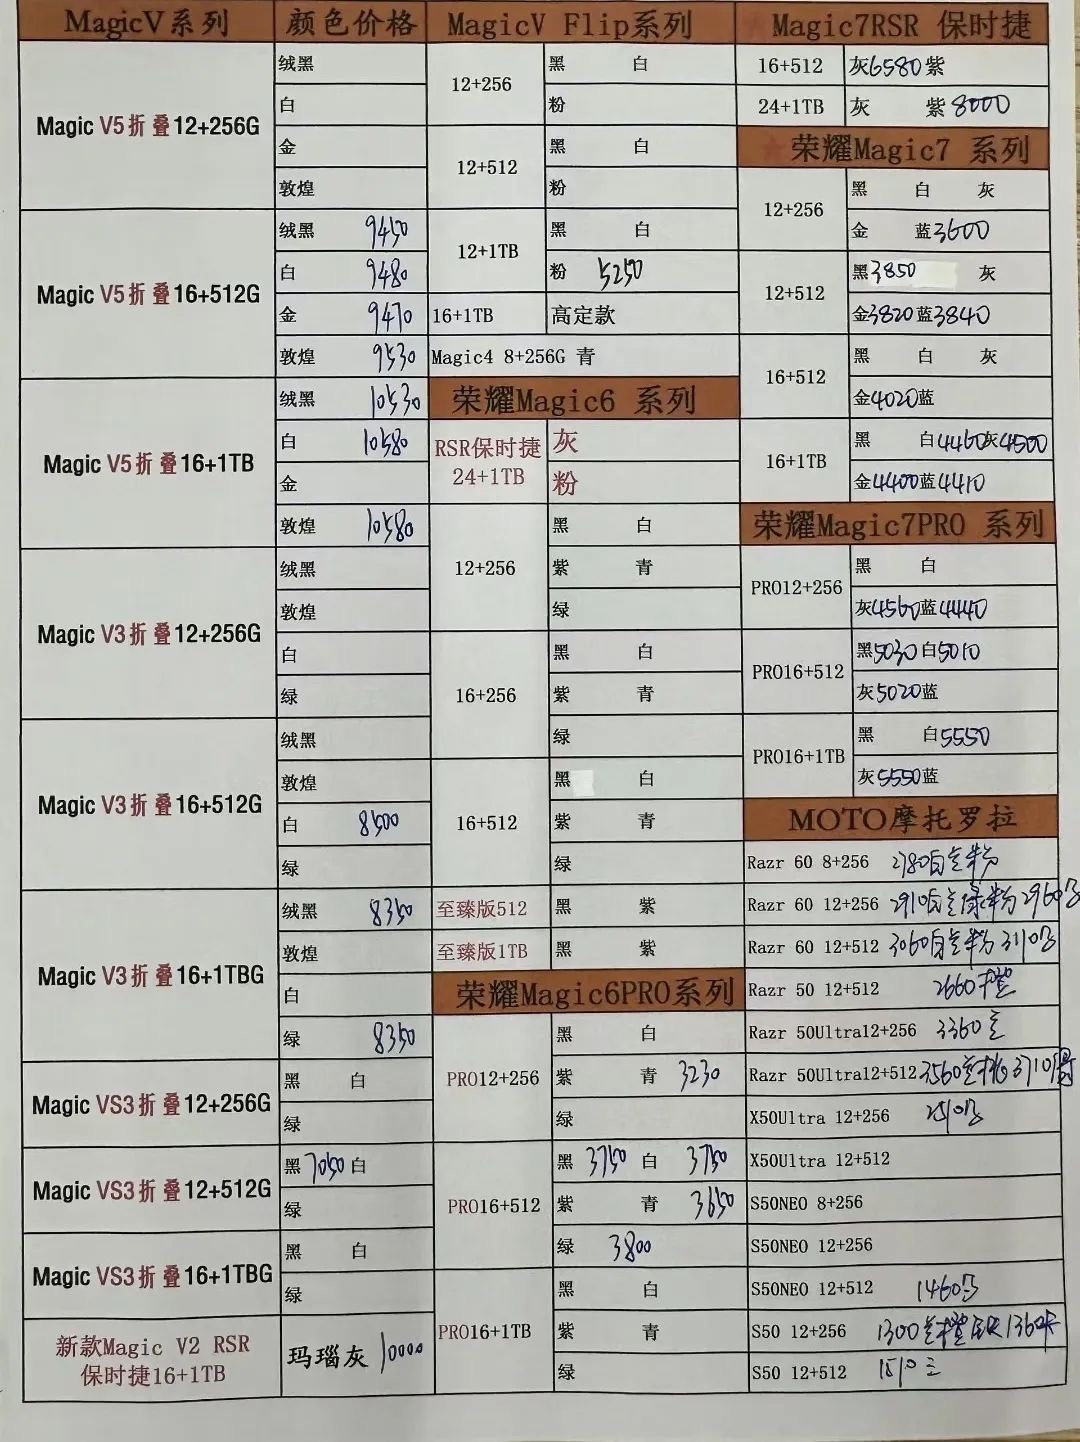 MagicV系列 颜色价格
Magic V5折叠12+256G
绒黑
白
金
敦煌
Magic V5折叠16+512G
绒黑 9450
白 9480
金 9470
敦煌 9530
Magic V5折叠16+1TB
绒黑 10530
白 10580
金
敦煌 10580
Magic V3折叠12+256G
绒黑
敦煌
白
绿
Magic V3折叠16+512G
绒黑
敦煌
白 8500
绿
Magic V3折叠16+1TBG
绒黑 8350
敦煌
白
绿 8350
Magic VS3折叠12+256G
黑 白
绿
Magic VS3折叠12+512G
黑7050白
绿
Magic VS3折叠16+1TBG
黑 白
绿
新款Magic V2 RSR
保时捷16+1TB
玛瑙灰 10000
MagicV Flip系列
12+256
黑 白
粉
12+512
黑 白
粉
12+1TB
黑 白
粉 5250
16+1TB 高定款
Magic4 8+256G 青
荣耀Magic6 系列
RSR保时捷
24+1TB
灰
粉
12+256
黑 白
紫 青
绿
16+256
黑 白
紫 青
绿
16+512
黑 白
紫 青
绿
至臻版512 黑 紫
至臻版1TB 黑 紫
荣耀Magic6PRO系列
PRO12+256
黑 白
紫 青 3230
绿
PRO16+512
黑 3750 白 3750
紫 青 3650
绿 3800
PRO16+1TB
黑 白
紫 青
绿
★Magic7RSR 保时捷
16+512 灰6580紫
24+1TB 灰 紫8000
★荣耀Magic7 系列
12+256
黑 白 灰
金 蓝3600
12+512
黑3850 灰
金3820蓝3840
16+512
黑 白 灰
金4020蓝
16+1TB
黑 白4460灰4500
金4400蓝4410
荣耀Magic7PRO 系列
PRO12+256
黑 白
灰4560蓝4440
PRO16+512
黑5030白5010
灰5020蓝
PRO16+1TB
黑 白5550
灰5550蓝
MOTO摩托罗拉
Razr 60 8+256 2780白 粉
Razr 60 12+256 2910白 绿粉2960
Razr 60 12+512 3060白 粉 3110
Razr 50 12+512 2660橙
Razr 50Ultra12+256 3360
Razr 50Ultra12+512 3560 3710
X50Ultra 12+256 2510
X50Ultra 12+512
S50NEO 8+256
S50NEO 12+256
S50NEO 12+512 1460
S50 12+256 1300 橙 1360
S50 12+512 1510